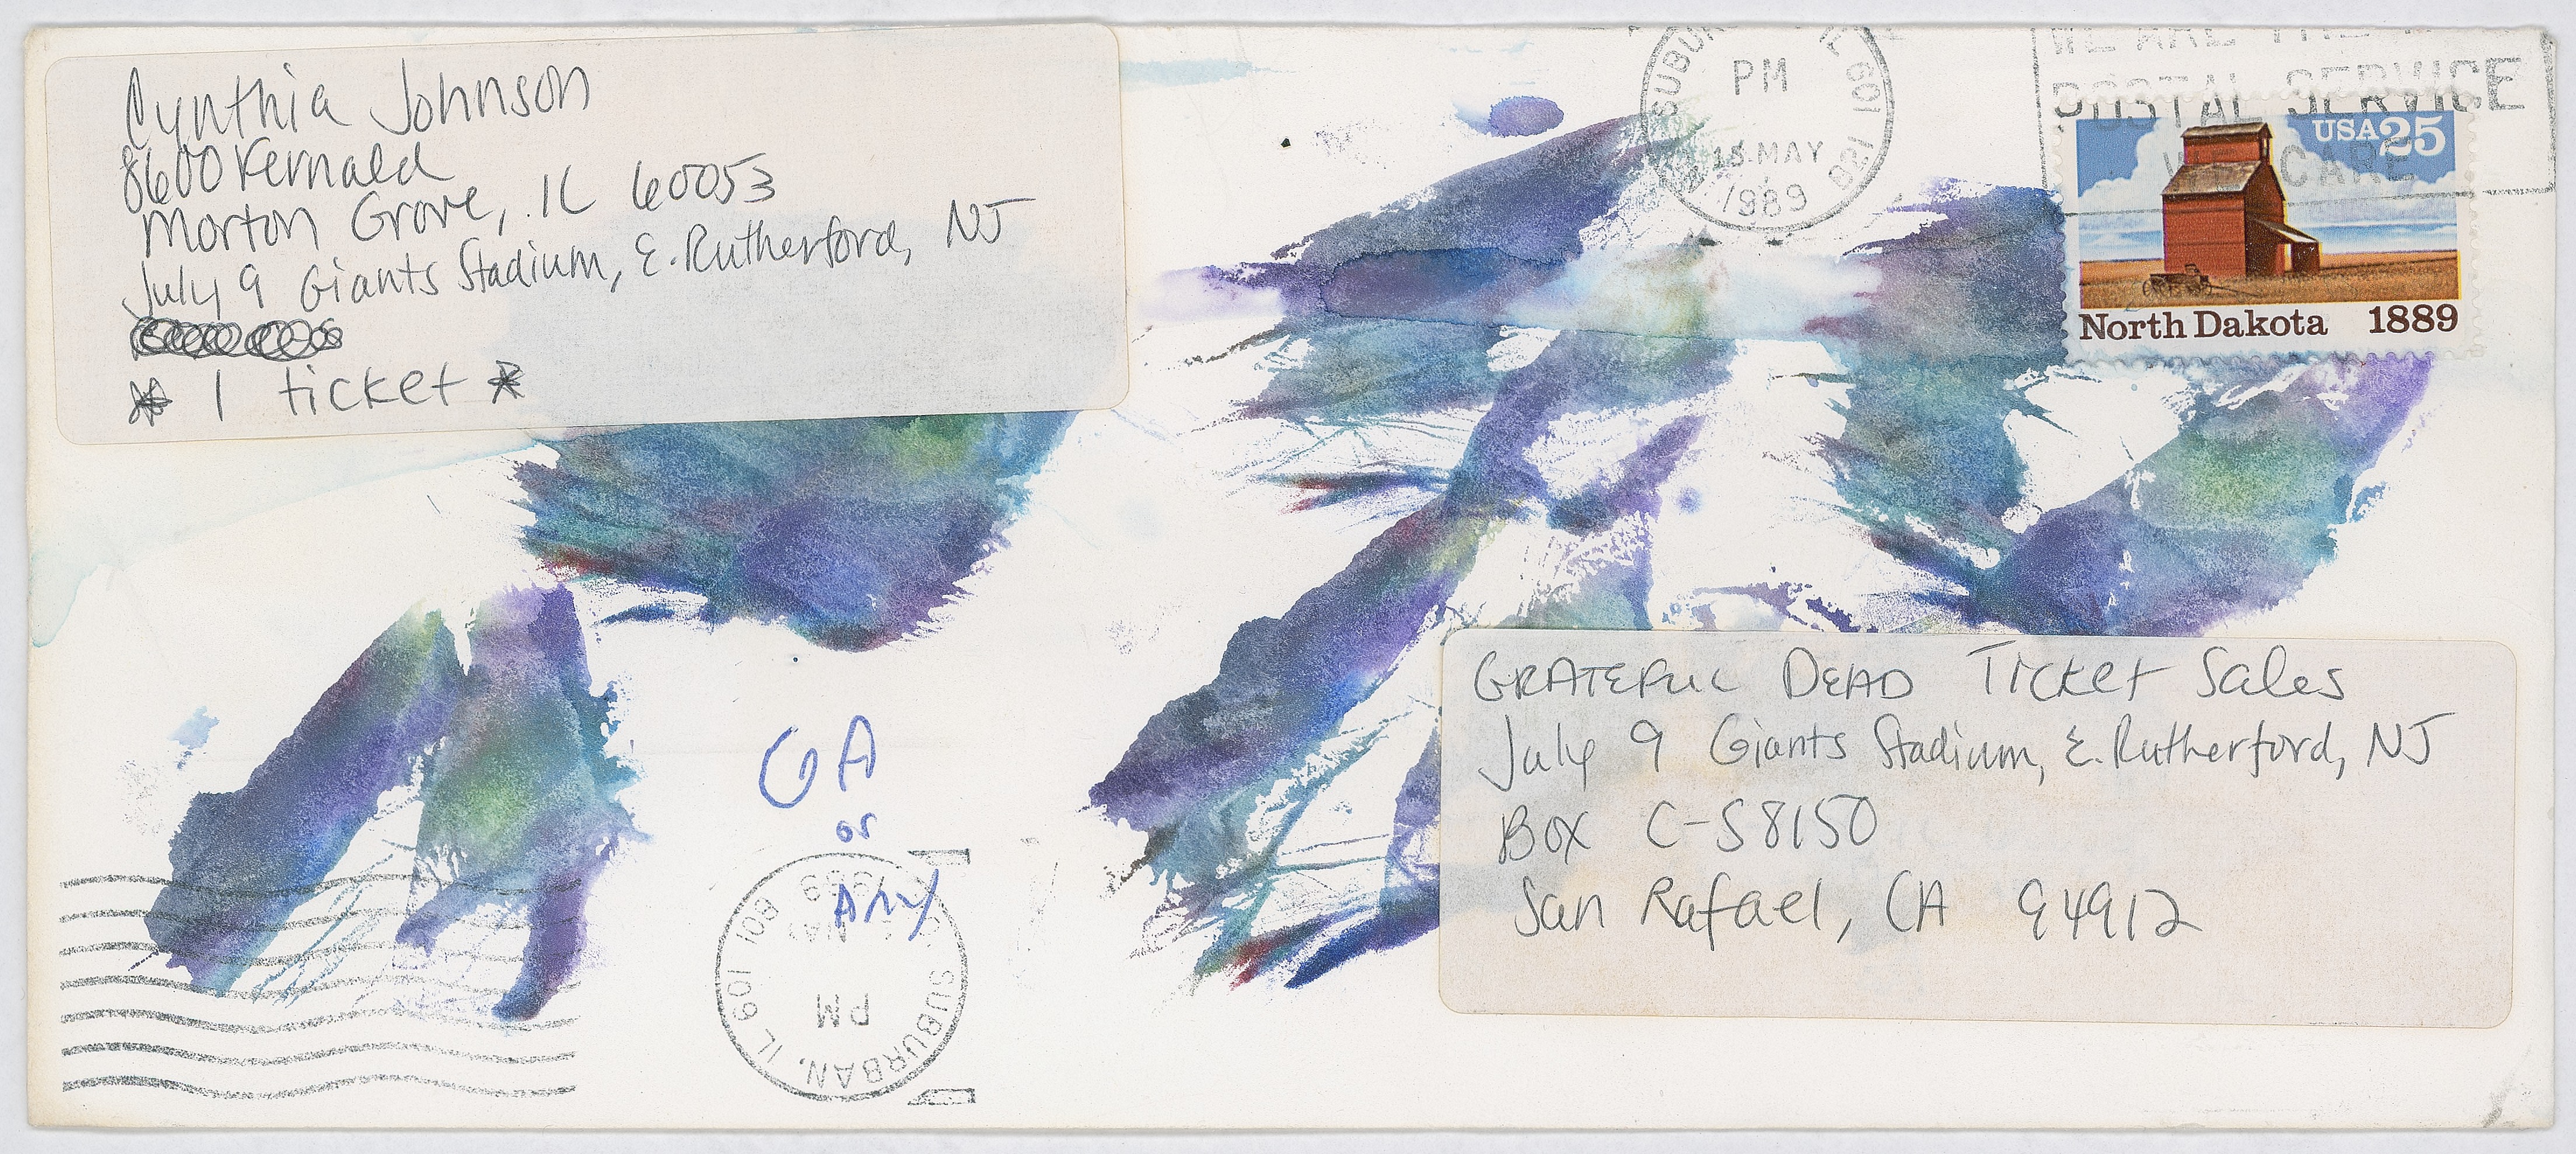 Cynthia Johnson
8600 Fernald
Morton Grove, IL 60053
July 9 Giants Stadium, E. Rutherford, NJ
* 1 ticket *
PM
15 MAY
1989
WE ARE THE
POSTAL SERVICE
WE CARE
USA 25
North Dakota 1889
GRATEFUL DEAD Ticket Sales
July 9 Giants Stadium, E. Rutherford, NJ
Box C-S8150
San Rafael, CA 94912
GA
or
Any
SUBURBAN, IL 601
PM
1989